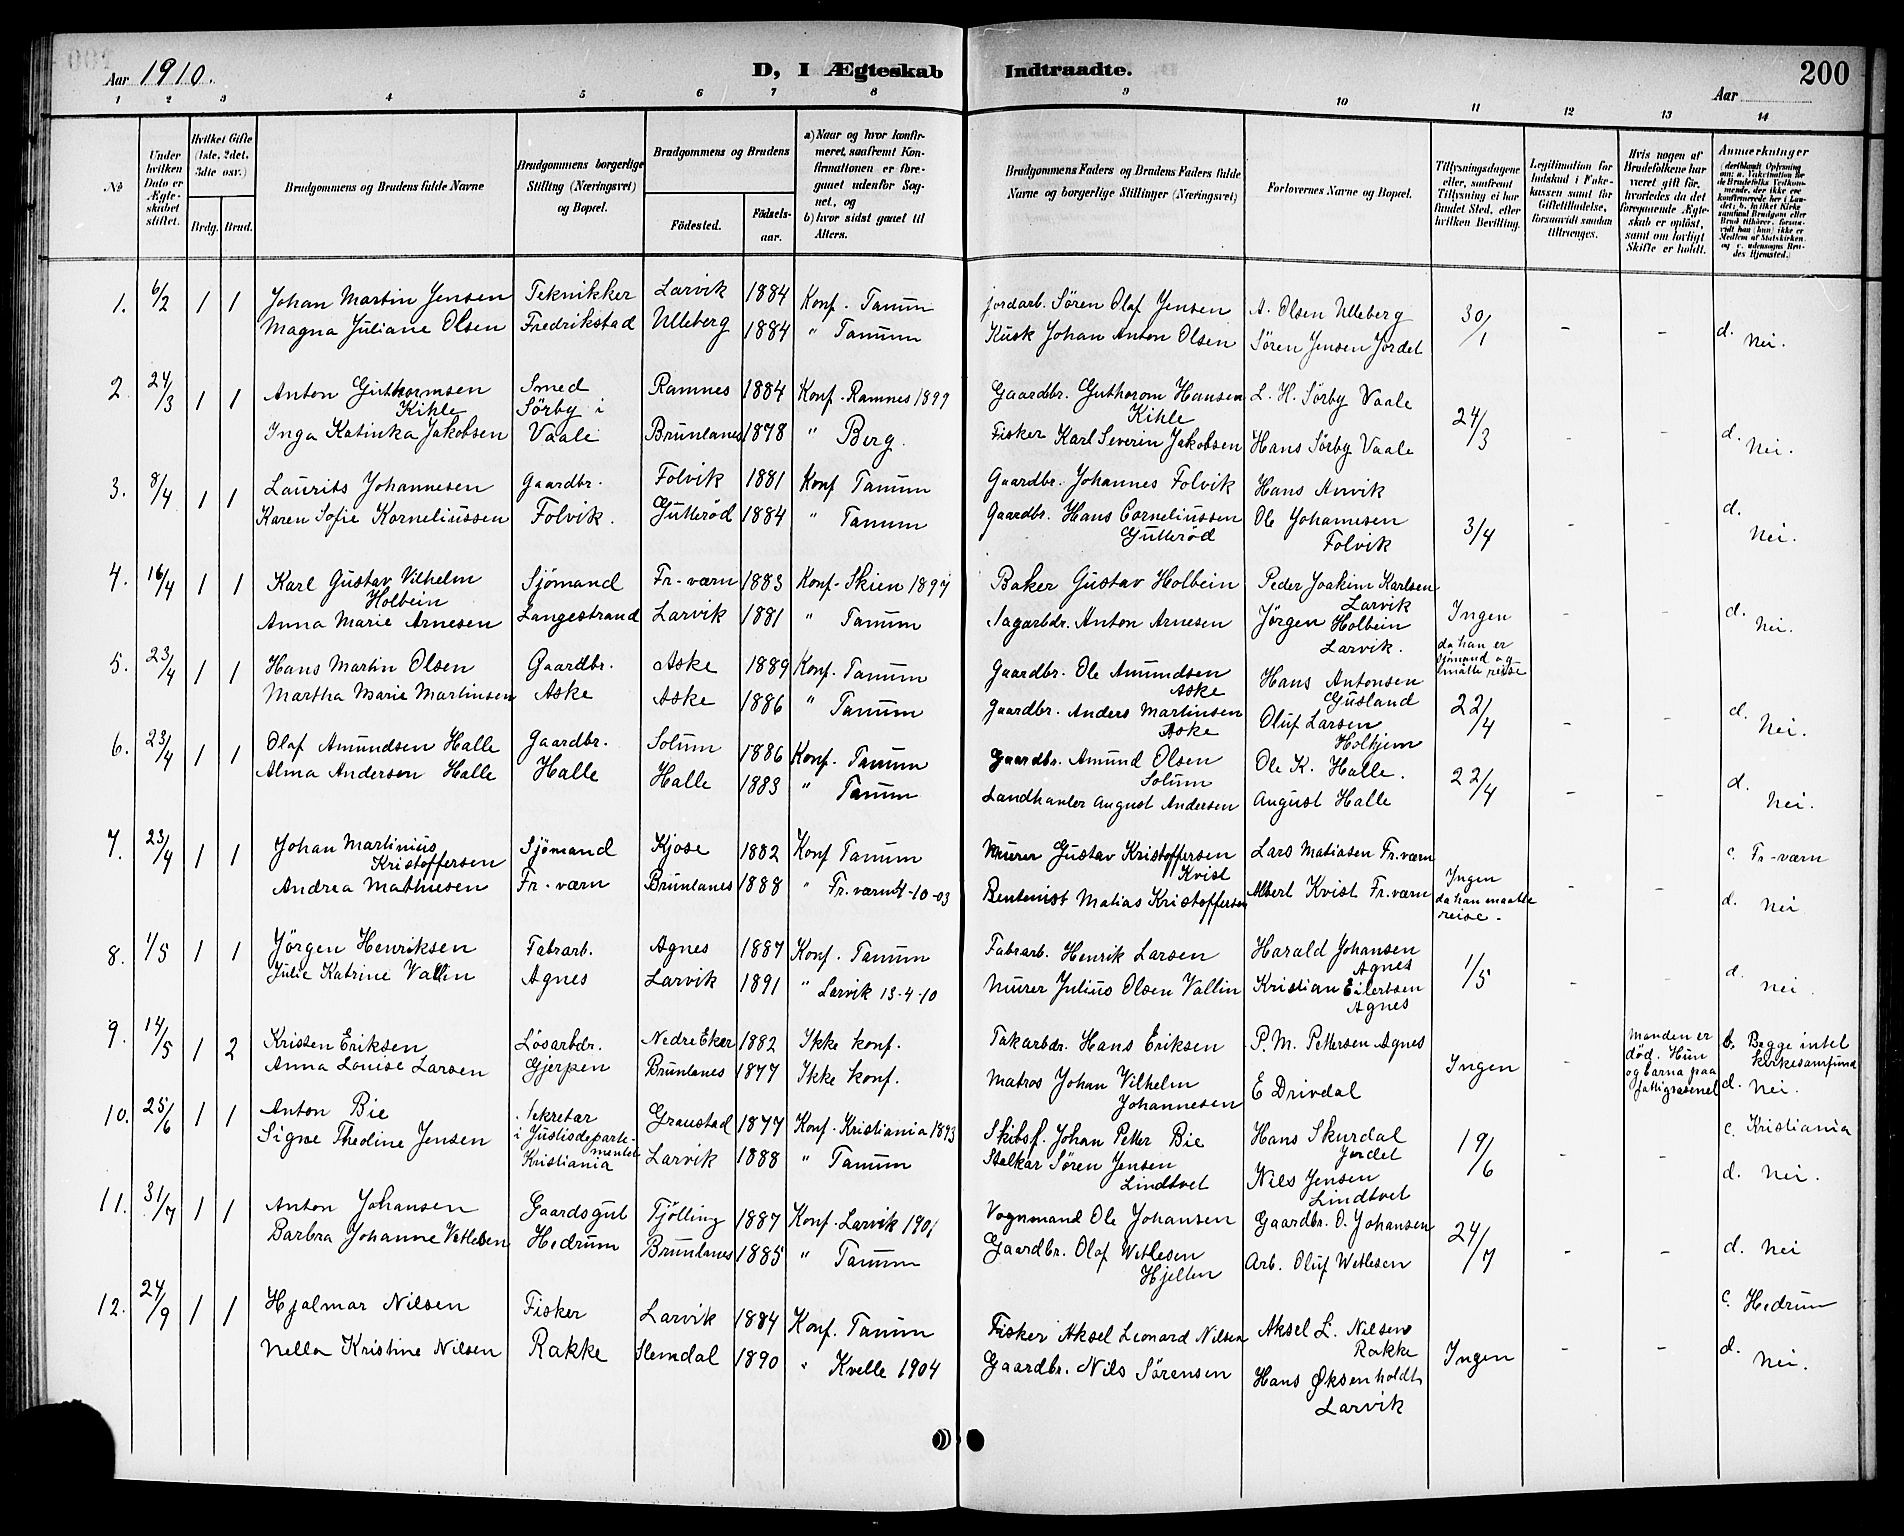 Aar 1910.
D, I Ægteskab Indtraadte.
Aar
200
1 2 3 4 5 6 7 8 9 10 11 12 13 14
No
Under hvilken Dato er Ægteskabet stiftet.
Hvilket Gifte (1ste, 2det, 3die osv.)
Brdg. Brud.
Brudgommens og Brudens fulde Navne
Brudgommens borgerlige Stilling (Næringsvei) og Bopæl.
Brudgommens og Brudens
Fødested.
Fødselsaar.
a) Naar og hvor konfirmeret, saafremt Konfirmationen er foregaaet udenfor Sognet, og
b) hvor sidst gaaet til Alters.
Brudgommens Faders og Brudens Faders fulde Navne og borgerlige Stillinger (Næringsvei)
Forlovernes Navne og Bopæl.
Tillysningsdagene eller, saafremt Tillysning ei har fundet Sted, efter hvilken Bevilling.
Legitimation for Indskud i Enkekassen samt for Giftetilladelse, forsaavidt saadan tiltrænges.
Hvis nogen af Brudefolkene har været gift før, hvorledes da det foregaaende Ægteskab er opløst, samt om lovligt Skifte er holdt.
Anmærkninger
1. 6/2 1 1 Johan Martin Jensen Teknikker Larvik 1884 Konf. Tanum Jordarb. Søren Olaf Jensen A. Olsen Ulleberg 30/1 - -
Magna Juliane Olsen Fredrikstad Ulleberg 1884 " Tanum Kusk Johan Anton Olsen Søren Jensen Jordet d. Nei.
2. 24/3 1 1 Anton Guthormsen Kihle Smed Ramnes 1884 Konf. Ramnes 1899 Gaardbr. Guthorm Hansen Kihle L. H. Sørby Vaale 24/3 - -
Inga Katinka Jakobsen Sørby i Vaale Brunlanes 1878 " Berg. Fisker Karl Severin Jakobsen Hans Sørby Vaale d. Nei.
3. 8/4 1 1 Laurits Johannesen Gaardbr. Folvik 1881 Konf Tanum Gaardbr. Johannes Folvik Hans Anvik
Karen Sofie Korneliussen Folvik. Gutterød 1884 " Tanum Gaardbr. Hans Corneliussen Gutterød Ole Johannesen Folvik 3/4 - - d. Nei.
4. 16/4 1 1 Karl Gustav Vilhelm Holbein Sjömand Fr-værn 1883 Konf. Skien 1897 Baker Gustav Holbein Peder Joakim Karlsen Larvik
Anna Marie Arnesen Langestrand Larvik 1881 " Tanum Sagarbdr. Anton Arnesen Jørgen Holbein Larvik. Ingen da han er sjömand og maatte reise - - d. Nei.
5. 23/4 1 1 Hans Martin Olsen Gaardbr. Aske 1889 Konf. Tanum Gaardbr. Ole Amundsen Aske Hans Antonsen Gusland
Martha Marie Martinsen Aske Aske 1886 " Tanum Gaardbr. Anders Martinsen Aske Oluf Larsen Holhjem 22/4 - - d. Nei.
6. 23/4 1 1 Olaf Amundsen Halle Gaardbr. Solum 1886 Konf. Tanum Gaardbr. Amund Olsen Solum Ole K. Halle.
Alma Andersen Halle Halle Halle 1883 " Tanum Landhanler August Andersen August Halle 22/4 - - d. Nei.
7. 23/4 1 1 Johan Martinius Kristoffersen Sjömand Kjose 1882 Konf Tanum Murer Gustav Kristoffersen Kvist Lars Matiasen Fr.værn c. Fr-værn
Andrea Mathiesen Fr-værn Brunlanes 1888 " Fr.værn 4-10-03 Matias Kristoffersen Albert Kvist Fr.værn Ingen da han maatte reise. - - d. Nei
8. 1/5 1 1 Jørgen Henriksen Fabrarb. Agnes 1887 Konf. Tanum Fabrarb. Henrik Larsen Harald Johansen Agnes
Julie Katrine Vallin Agnes Larvik 1891 " Larvik 13-4-10 Murer Julius Olsen Vallin Kristian Eilertsen Agnes 1/5 - - d. Nei.
9. 14/5 1 2 Kristen Eriksen Lösarbdr. Nedre Eker 1882 Ikke konf. Hans Eriksen P. M. Pettersen Agnes Manden er død. Hun og barna paa fattigvæsenet b. Begge intet kirkesamfund
Anna Louise Larsen Gjerpen Brunlanes 1877 Ikke konf. Matros Johan Vilhelm Johannesen E Drivdal Ingen - d. Nei.
10. 25/6 1 1 Anton Bie Sekretær i Justisdepartementet Graustad 1877 Konf. Kristiania 1893 Skibsf. Johan Petter Bie Hans Skurdal Jordet 19/6 c. Kristiania
Signe Thedine Jensen Kristiania Larvik 1888 " Tanum Stelkar Søren Jensen Lindtvet Nils Jensen Lindtvet - - d. Nei.
11. 31/7 1 1 Anton Johansen Gaardsgut Tjølling 1887 Konf. Larvik 1901 Vognmand Ole Johansen Gaardbr. O. Johansen 24/7
Barbra Johanne Vetlesen Hedrum Brunlanes 1885 " Tanum Gaardbr. Olaf Wetlesen Hjelten Arb. Oluf Wetlesen - - d. Nei
12. 24/9 1 1 Hjalmar Nilsen Fisker Larvik 1884 Konf. Tanum Fisker Aksel Leonard Nilsen Aksel L. Nilsen Rakke c. Hedrum
Nella Kristine Nilsen Rakke Slemdal 1890 " Kvelle 1904 Gaardbr. Nils Sørensen Hans Øksenholdt Larvik Ingen - - d. Nei.